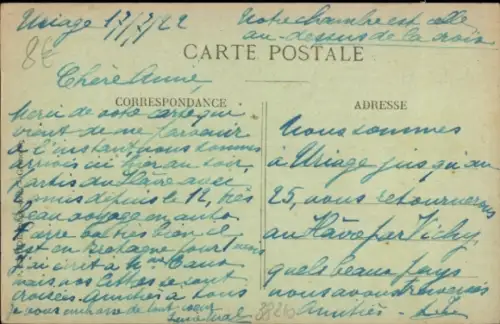 Uriage 17/7/22
Notre chambre est celle
au-dessus de la croix
8€
CARTE POSTALE
Chère Amie,
CORRESPONDANCE
ADRESSE
Merci de votre carte qui
vient de me parvenir
à l'instant nous sommes
arrivés ici hier au soir,
partis du Hâvre avec
amis depuis le 12, très
beau voyage en auto
et en Bretagne pour 1 mois
j'ai écrit à Mme
mais nos lettres se sont
croisées Amitiés à tous
je vous embrasse de tout cœur
Nous sommes
à Uriage jusqu'au
25, nous retournerons
au Hâvre par Vichy
quels beaux pays
nous avons traversés
Amitiés